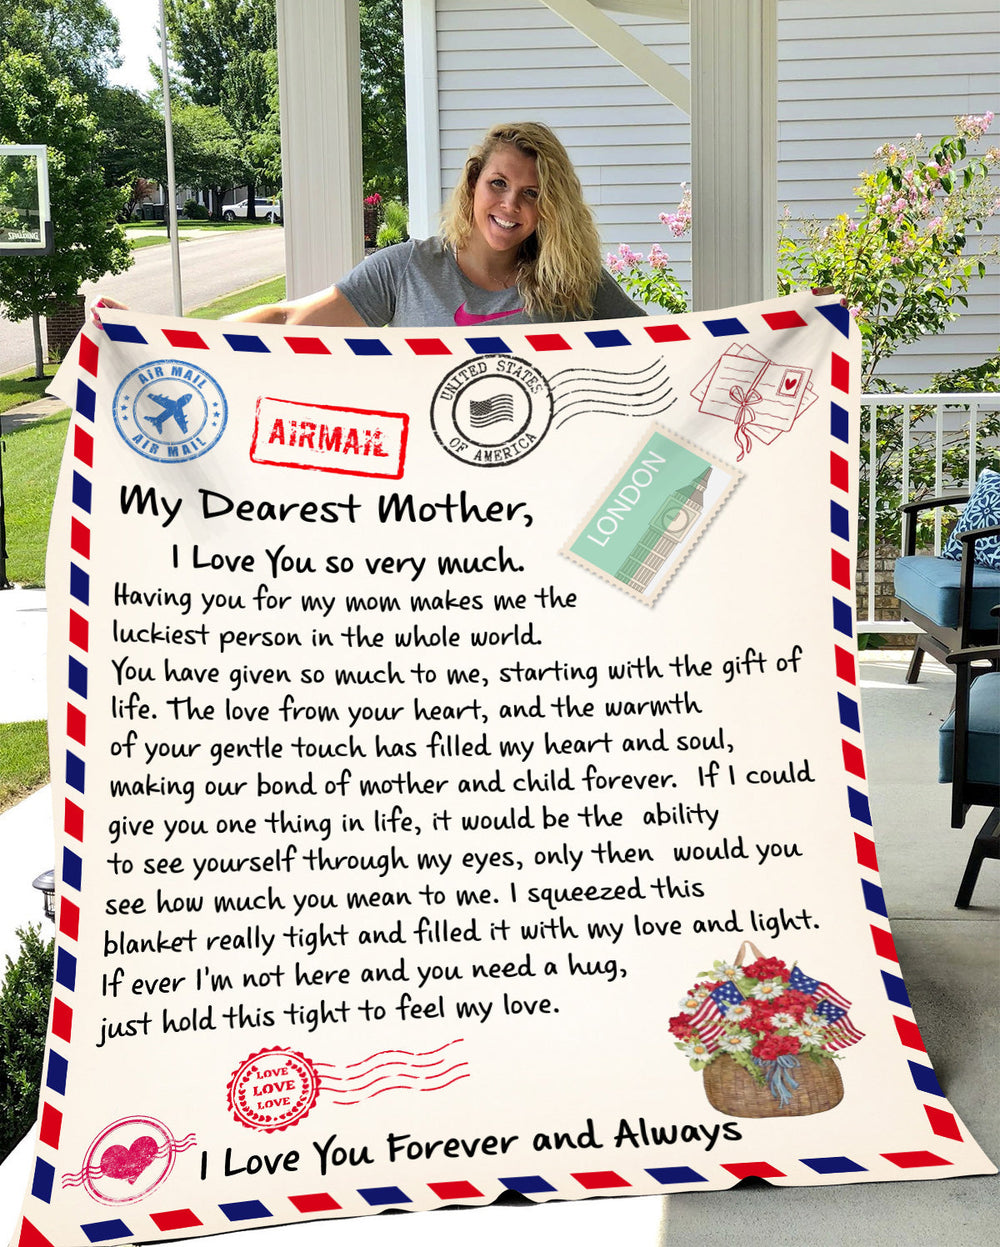 SPALDING
AIR MAIL
AIR MAIL
AIRMAIL
UNITED STATES
OF AMERICA
LONDON
My Dearest Mother,
I Love You so very much.
Having you for my mom makes me the
luckiest person in the whole world.
You have given so much to me, starting with the gift of
life. The love from your heart, and the warmth
of your gentle touch has filled my heart and soul,
making our bond of mother and child forever. If I could
give you one thing in life, it would be the ability
to see yourself through my eyes, only then would you
see how much you mean to me. I squeezed this
blanket really tight and filled it with my love and light.
If ever I'm not here and you need a hug,
just hold this tight to feel my love.
LOVE
LOVE
LOVE
I Love You Forever and Always